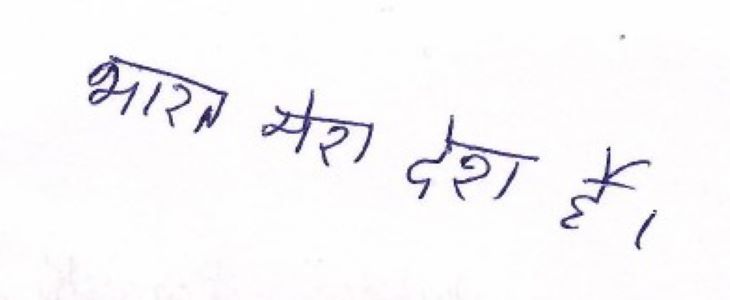 भारत मेरा देश है।